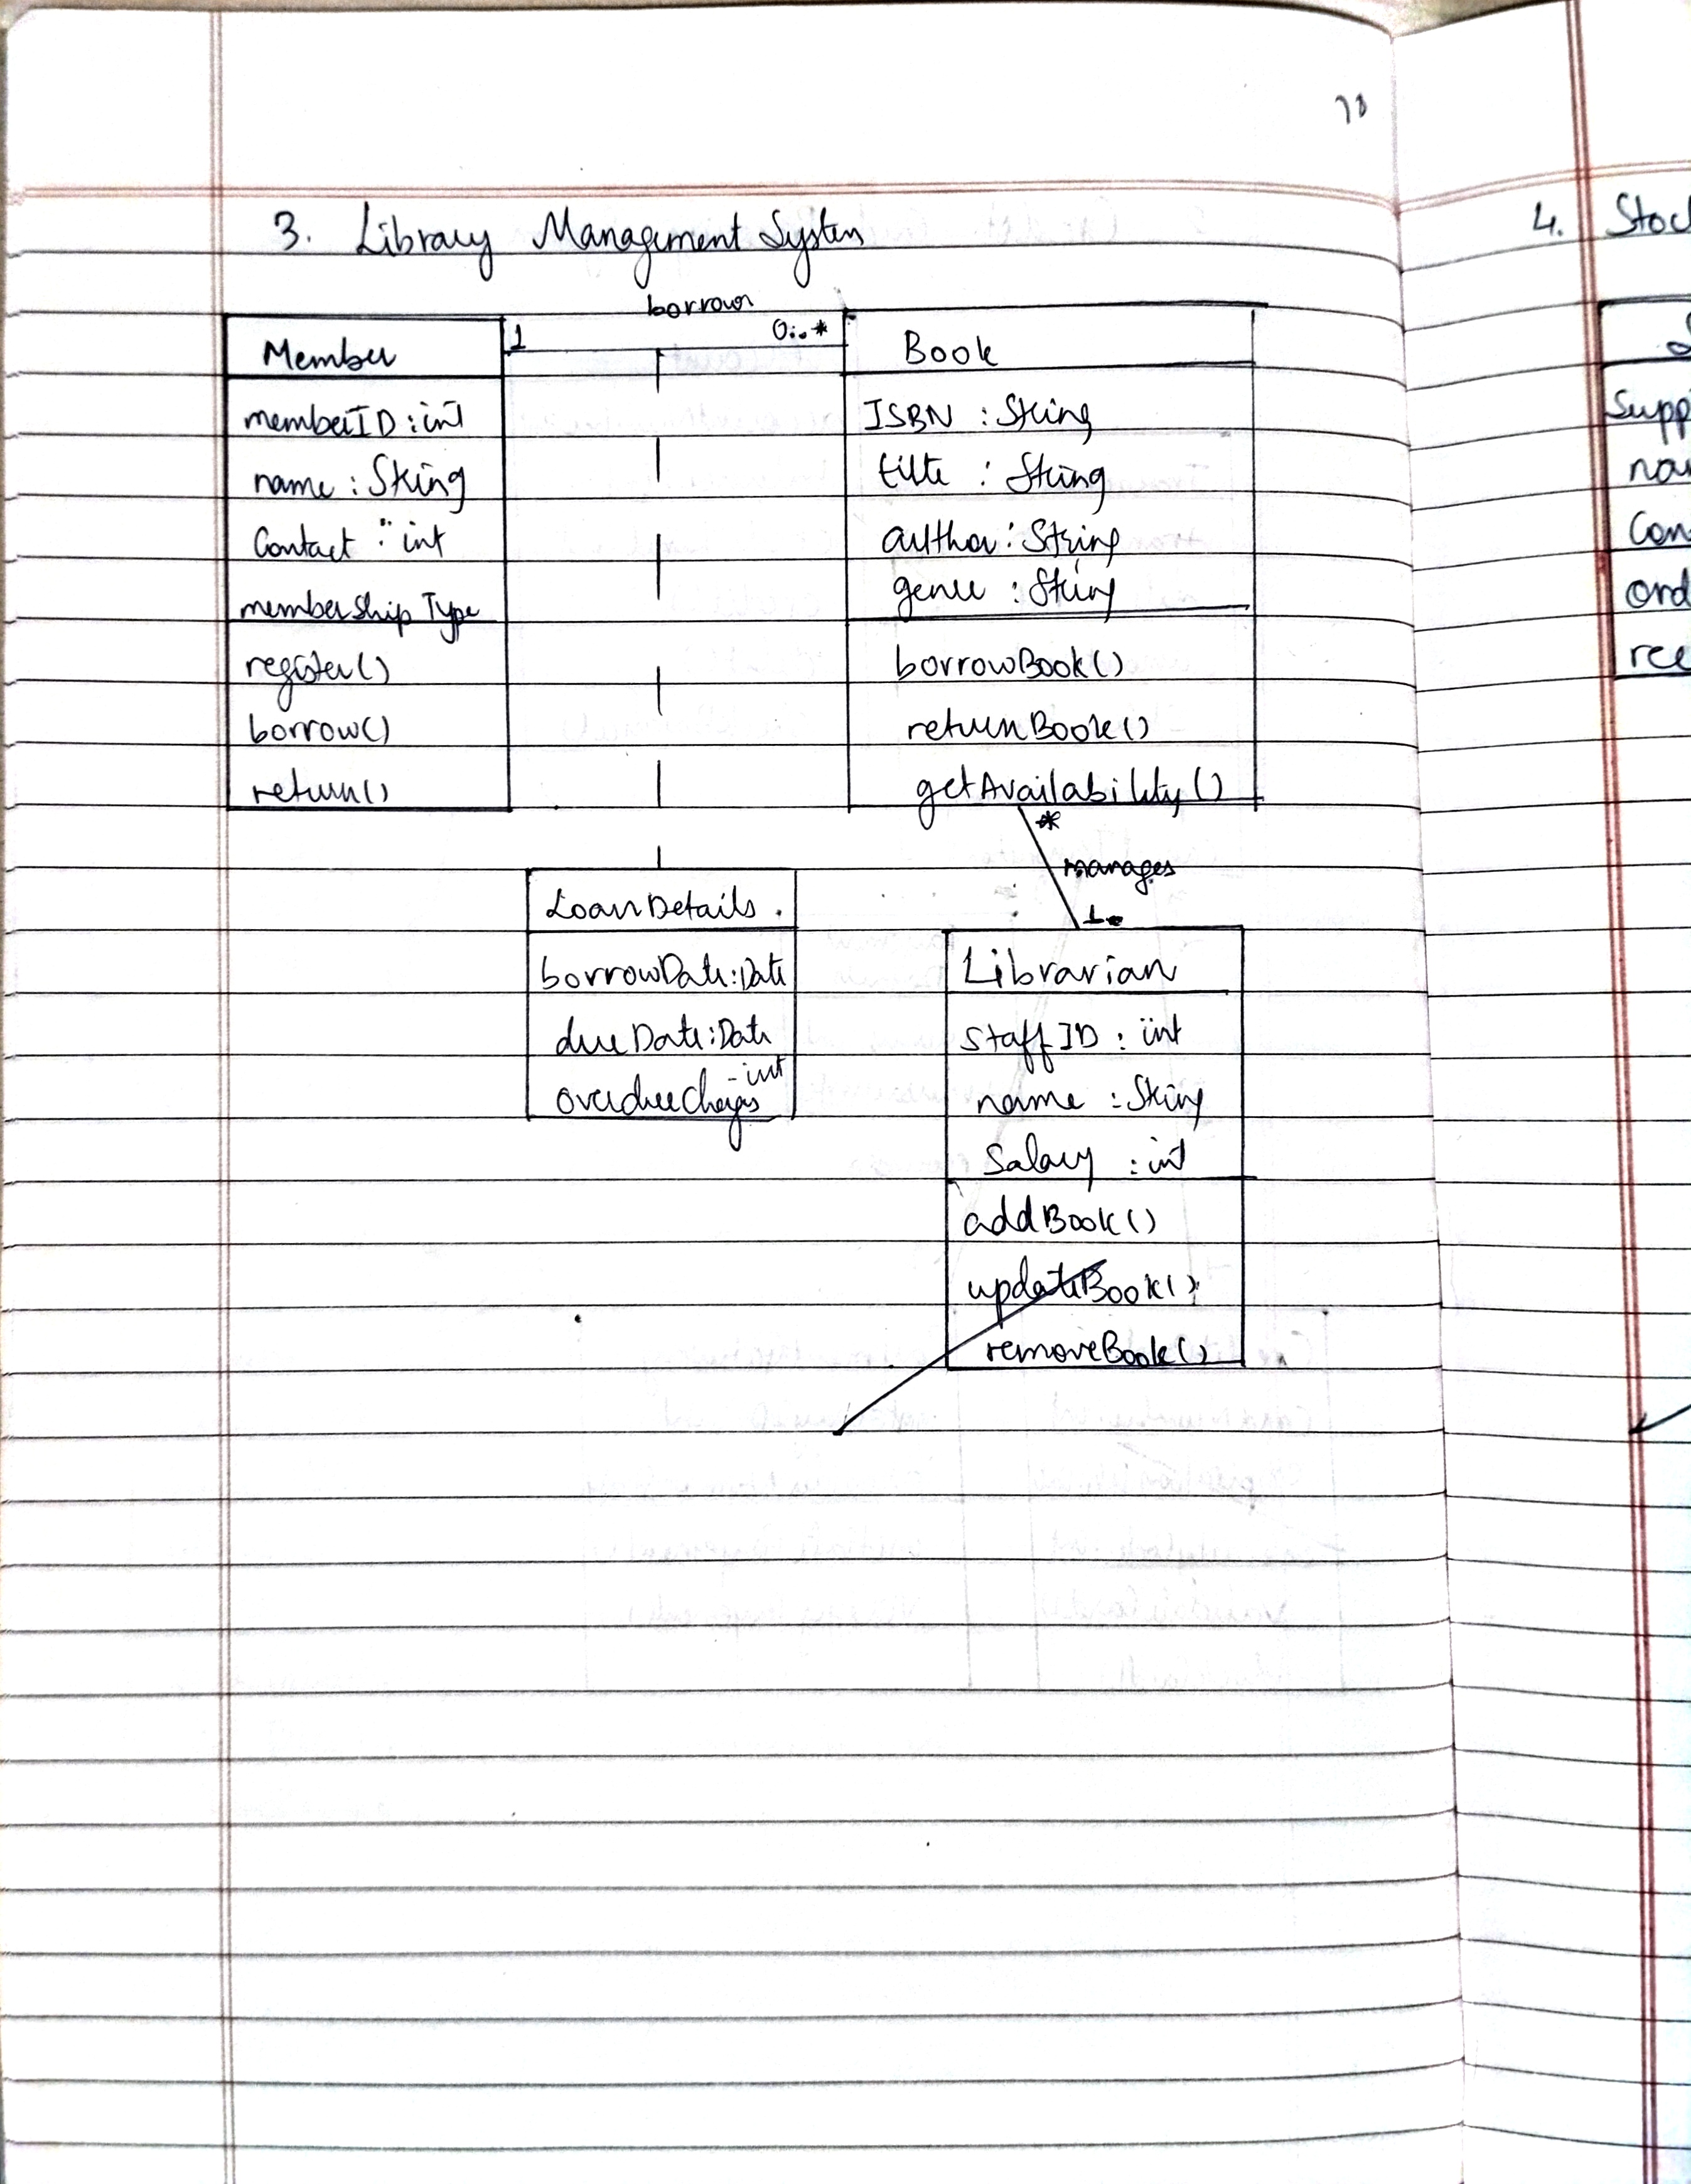 3. Library Management System
borrows
1
0..*
Member
memberID : int
name : String
Contact : int
membership Type
register()
borrow()
return()
Book
ISBN : String
title : String
author : String
genre : String
borrowBook()
returnBook()
getAvailability()
*
manages
1
LoanDetails
borrowDate : Date
dueDate : Date
overdueCharges - int
Librarian
StaffID : int
name : String
Salary : int
addBook()
updateBook()
removeBook()
4. Stoc
Supp
na
Con
ord
rec